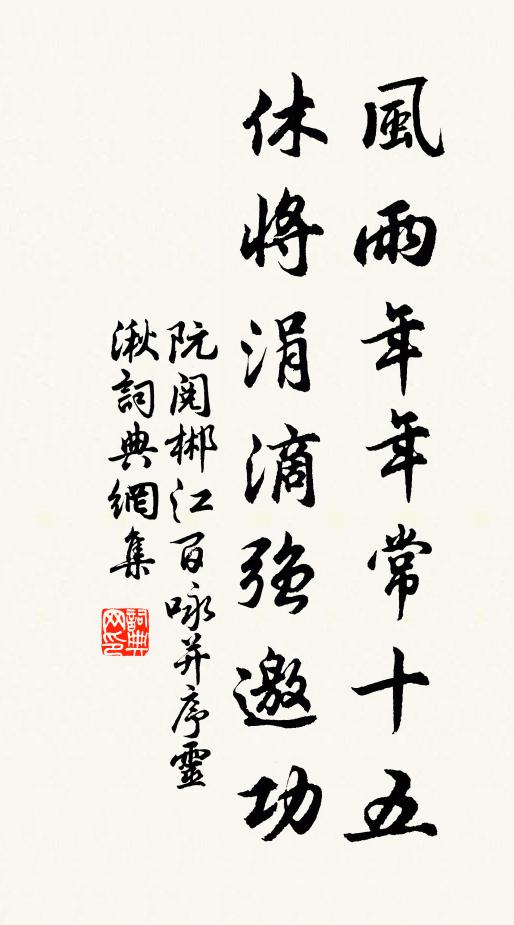 風雨年年常十五
休將涓滴強邀功
阮閱郴江百咏并序靈
湫詞典網集
詞典
网印